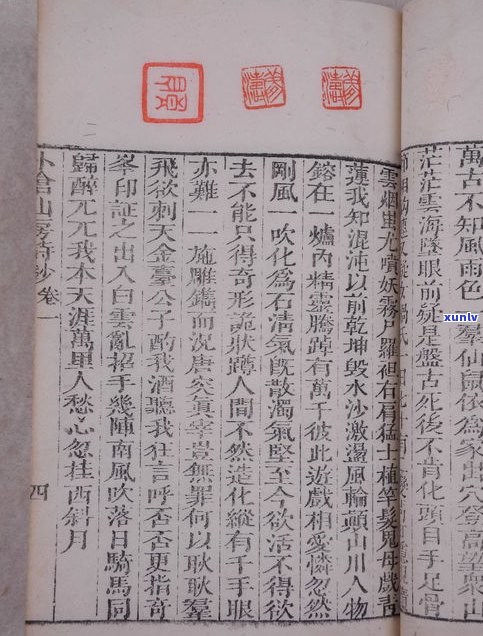 萬古不知風雨色一羣仙鼠依為家出穴登高望衆山
茫茫雲海墜眼前宛是盤古死後不肯化頭目手足骨
雲烟蚩尤噴妖霧尸羅袒右肩猛士植竿髮鬼母戲青
蓮我知混沌以前乾坤毀水沙激盪風輪顛山川人物
鎔在一爐內精靈騰踔有萬千彼此遊戲相愛憐忽然
剛風一吹化爲石清氣既散濁氣堅至今欲活不得欲
去不能只得奇形詭狀蹲人間不然造化縱有千手眼
亦難一一施雕鐫而況唐突眞宰豈無罪何以耿耿羣
飛欲刺天金臺公子酌我酒聽我狂言呼否否更指奇
峯印証之出入白雲亂招手幾陣南風吹落日騎馬同
歸醉兀兀我本天涯萬里人愁心忽挂西斜月
小倉山房詩鈔卷一
四
xunlv